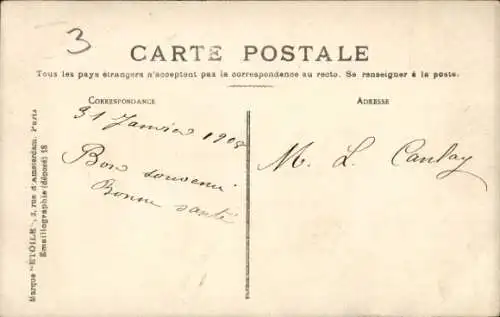 3
CARTE POSTALE
Tous les pays étrangers n'acceptent pas la correspondance au recto. Se renseigner à la poste.
CORRESPONDANCE
ADRESSE
31 Janvier 1908
Bon souvenir
Bonne santé
M. L. Canlay
Marque "ÉTOILE", 3, rue d'Amsterdam, Paris
Emaillographie (déposé) 18